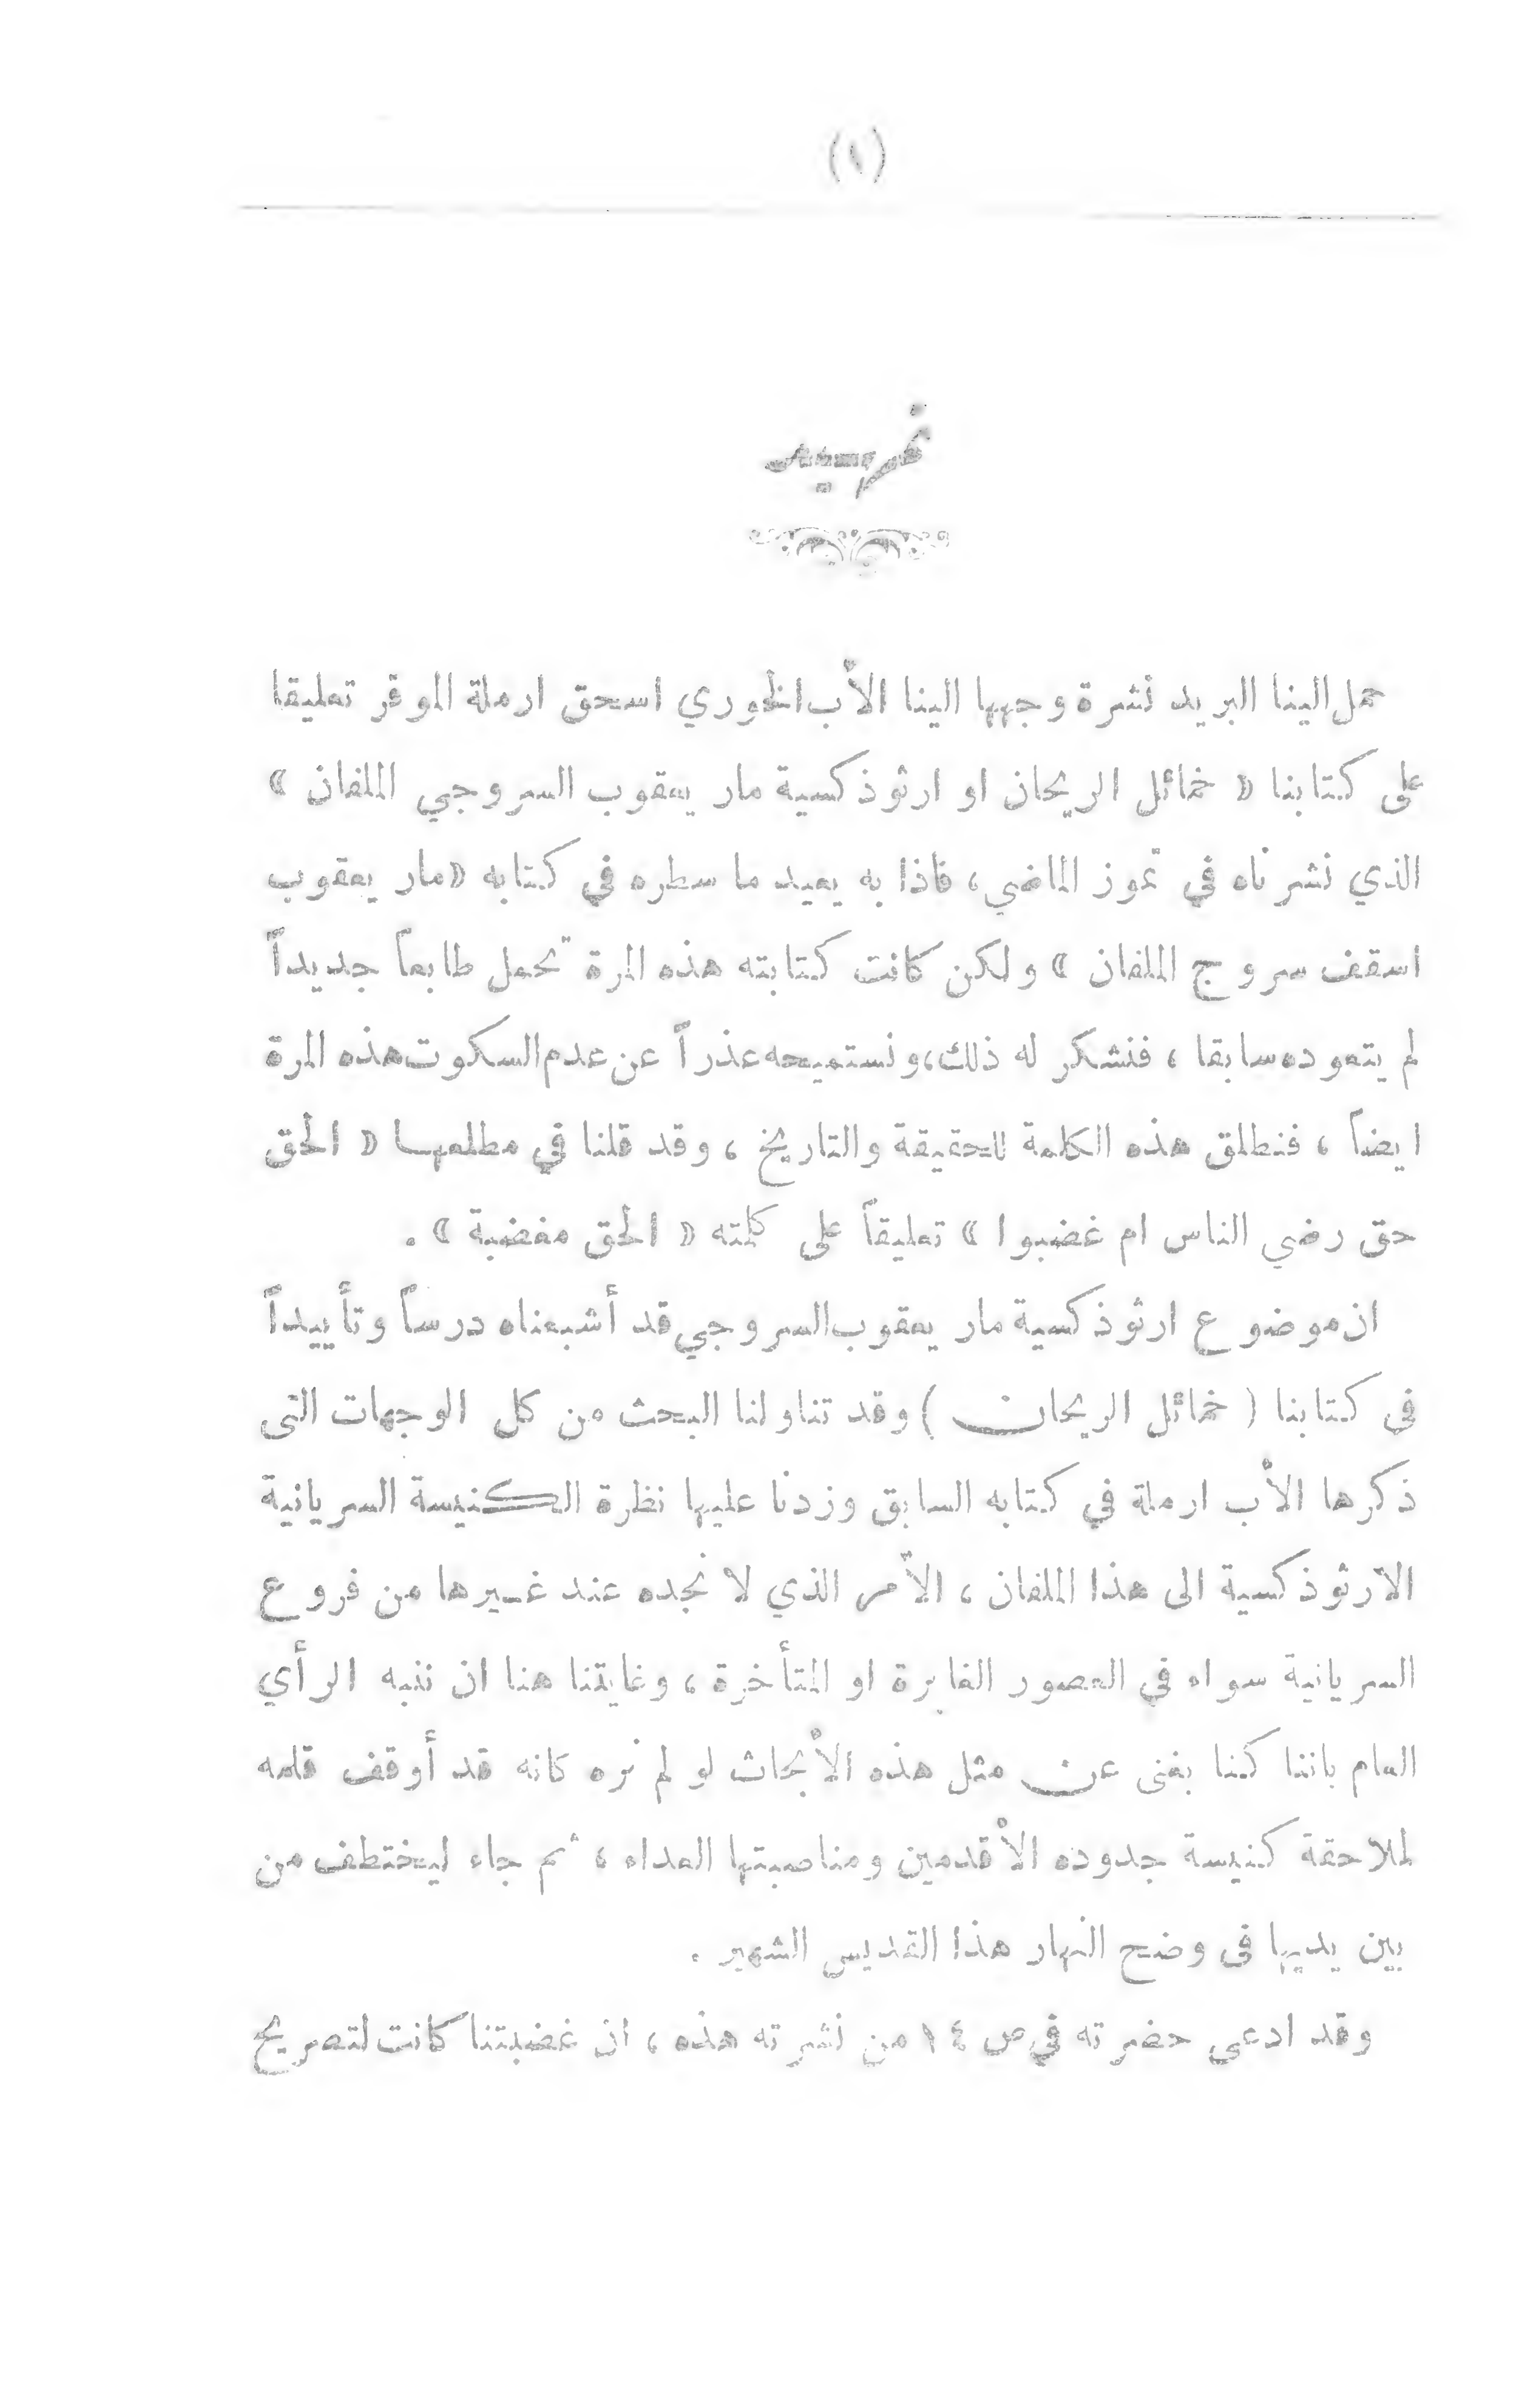 (١)
تمهيد
حمل الينا البريد نشرة وجهها الينا الأب الخوري اسحق ارملة الموقر تعليقا
على كتابنا « خمائل الريحان او ارثوذكسية مار يعقوب السروجي الملفان »
الذي نشرناه في تموز الماضي، فاذا به يعيد ما سطره في كتابه «مار يعقوب
اسقف سروج الملفان » ولكن كانت كتابته هذه المرة تحمل طابعاً جديداً
لم يتعوده سابقا ، فنشكر له ذلك، ونستميحه عذراً عن عدم السكوت هذه المرة
ايضاً ، فنطلق هذه الكلمة للحقيقة والتاريخ ، وقد قلنا في مطلعها « الحق
حق رضي الناس ام غضبوا » تعليقاً على كلمته « الحق مغضبة » .
ان موضوع ارثوذكسية مار يعقوب السروجي قد أشبعناه درساً وتأييداً
في كتابنا ( خمائل الريحان ) وقد تناولنا البحث من كل الوجهات التى
ذكرها الأب ارملة في كتابه السابق وزدنا عليها نظرة الكنيسة السريانية
الارثوذكسية الى هذا الملفان ، الأمر الذي لا نجده عند غيرها من فروع
السريانية سواء في العصور الغابرة او المتأخرة ، وغايتنا هنا ان ننبه الرأي
العام باننا كنا بغنى عن مثل هذه الأبحاث لو لم نره كانه قد أوقف قلمه
لملاحقة كنيسة جدوده الأقدمين ومناصبتها العداء ، ثم جاء ليختطف من
بين يديها فى وضح النهار هذا القديس الشهير .
وقد ادعى حضرته في ص ١٤ من نشرته هذه ، ان غضبتنا كانت لتصريح